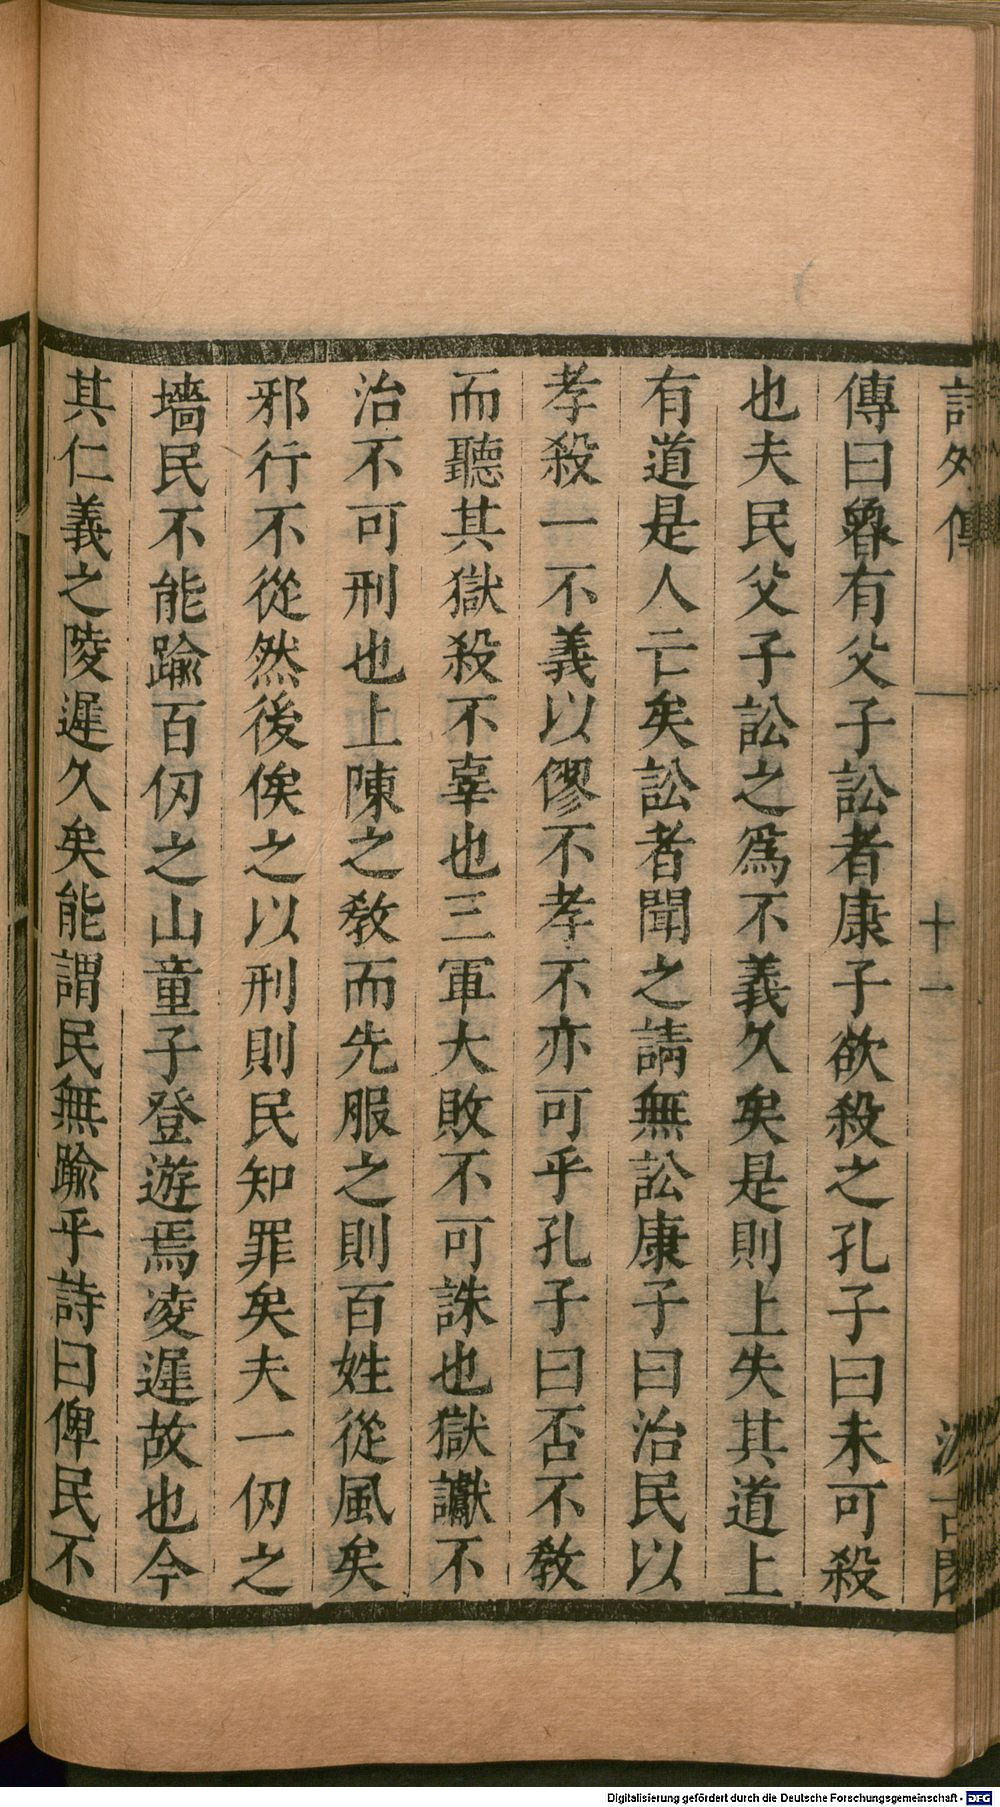 詩外傳
十一
汲古閣
傳曰魯有父子訟者康子欲殺之孔子曰未可殺
也夫民父子訟之爲不義久矣是則上失其道上
有道是人亡矣訟者聞之請無訟康子曰治民以
孝殺一不義以僇不孝不亦可乎孔子曰否不敎
而聽其獄殺不辜也三軍大敗不可誅也獄讞不
治不可刑也上陳之敎而先服之則百姓從風矣
邪行不從然後俟之以刑則民知罪矣夫一仞之
墻民不能踰百仞之山童子登遊焉凌遲故也今
其仁義之陵遲久矣能謂民無踰乎詩曰俾民不
Digitalisierung gefördert durch die Deutsche Forschungsgemeinschaft - DFG